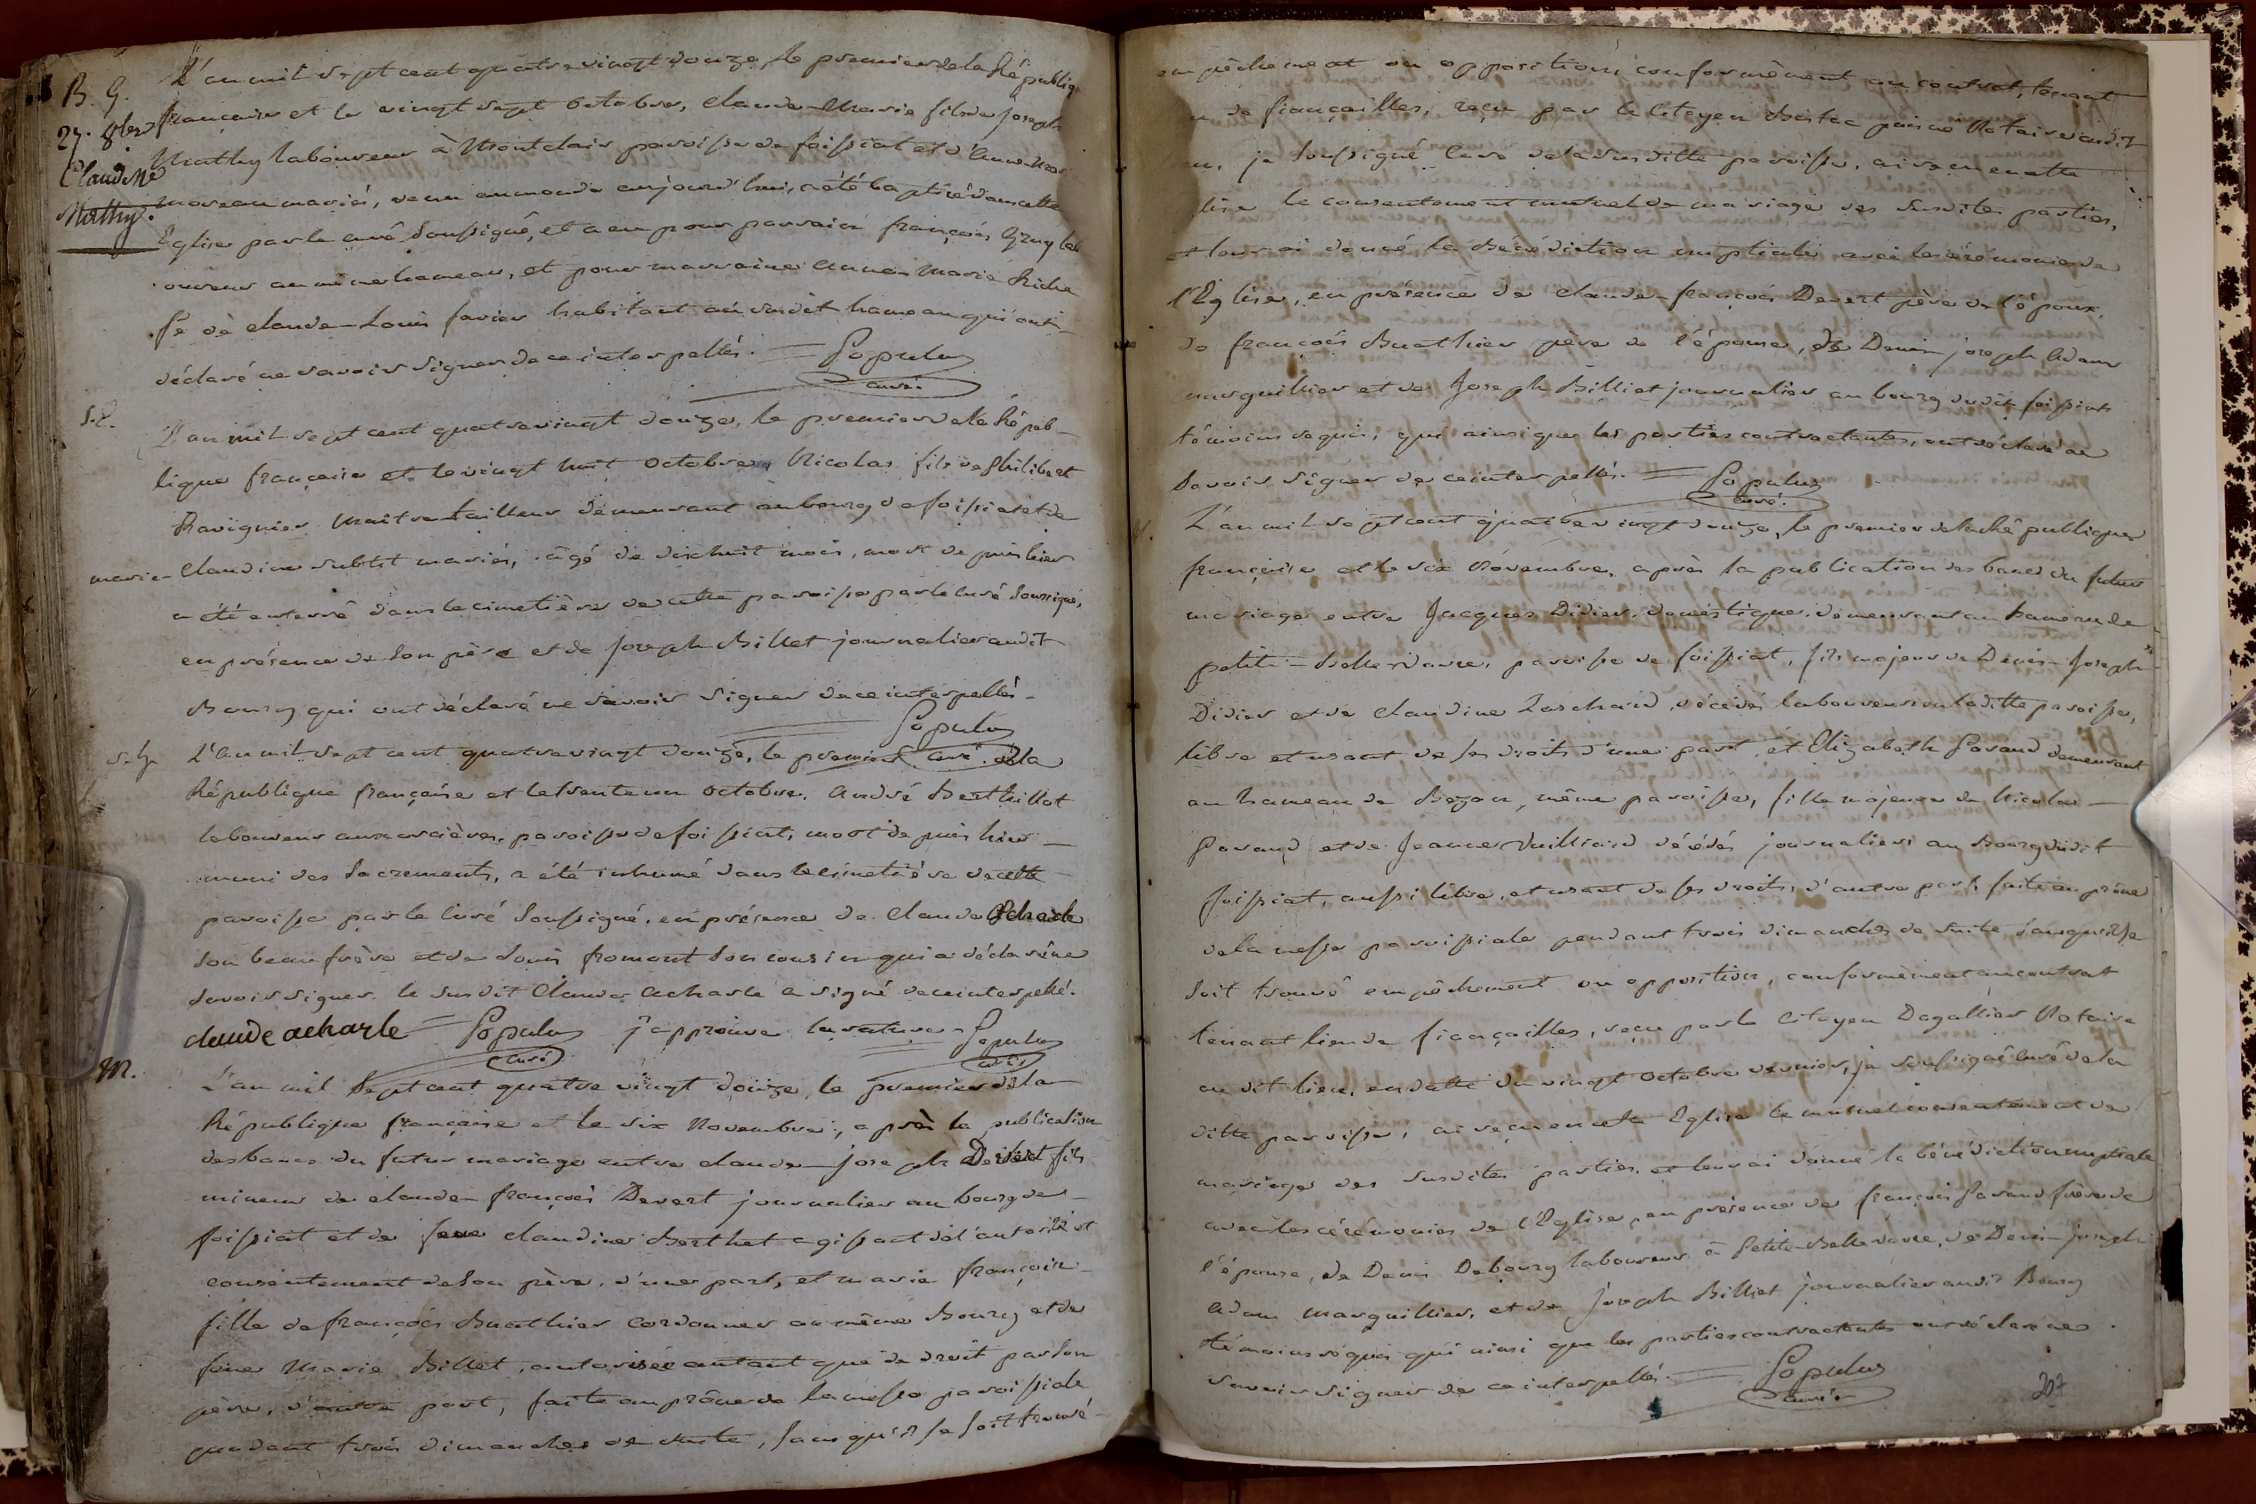 B. G. L'an mil sept cent quatre vingt douze, le premier de la Républiq
27. 8bre française et le vingt sept octobre, Claude-Marie fils de Joseph
Claude Me Mathy laboureur à Montclair paroisse de foissiat et d'Anne
Mathy. moreau mariés, venu au monde aujourd'hui, a été baptisé dans cette
Eglise par le curé soussigné, et a eu pour parrain françois lab
oureur au même hameau, et pour marraine Anne Marie
fé de Claude-Louis favier habitant au susdit hameau qui ont
déclaré ne savoir signer de ce interpellés. = Populus
curé.
S. L'an mil sept cent quatre vingt douze, le premier de la Répub-
lique française et le vingt huit octobre, Nicolas fils de Philibert
Ravignier Maitre tailleur demeurant au bourg de foissiat et de
marie- Claudine subtil mariés, âgé de dixhuit mois, mort depuis hier
a été enterré dans le cimetière de cette paroisse par le curé soussigné,
en présence de son père et de Joseph Billet journalier audit
Bourg qui ont déclaré ne savoir signer de ce interpellés -
Populus
S. h. L'an mil sept cent quatre vingt douze, le premier curé. de la
République française et le trente un octobre, André Berthillot
laboureur aux , paroisse de foissiat, mort depuis hier -
muni des sacrements, a été inhumé dans le cimetière de cette
paroisse par le curé soussigné, en présence de Claude Acharle
son beaufrère et de Louis fromont son cousin qui a déclaré ne
savoir signer. le susdit Claude Acharle a signé de ce interpellé.
claude acharle = Populus j'approuve la rature = Populus
curé curé
M. L'an mil sept cent quatre vingt douze, le premier de la
République française et le six Novembre, après la publication
des bancs du futur mariage entre claude-joseph Devert fils
mineur de claude françois Devert journalier au bourg de
foissiat et de feue claudine Berthet agissant de l'autorité et
consentement de son père, d'une part, et marie françoise
fille de françois Buathier Cordonnier au même Bourg et de
feue Marie Billet, autorisée autant que de droit par son
père, d'autre part, faite au prône de la messe paroissiale
pendant trois dimanches de suite, sans qu'il se soit trouvé
empêchement ou opposition, conformément au contrat, tenant
de fiançailles, reçu par le Citoyen puiné Notaire audit
lieu, je soussigné Curé de la susditte paroisse, ai reçu en cette
Eglise le consentement mutuel de mariage des susdites parties,
et leur ai donné la bénédiction nuptiale avec les cérémonies de
l'Eglise, en présence de claude-françois Devert père de l'époux,
de françois Buathier père de l'épouse, de Denis-joseph Adam
marguillier et de Joseph Billiet journalier au bourg dudit foissiat
témoins requis, qui ainsi que les parties contractantes, ont déclaré ne
savoir signer de ce interpellés. = Populus
curé.
L'an mil sept cent quatre vingt douze, le premier de la République
française et le six Novembre, après la publication des bancs du futur
mariage entre Jacques Didier, domestique demeurant au hameau de
petite-Bellevavre, paroisse de foissiat, fils majeur de Denis-Joseph
Didier et de Claudine Laschaud, décédés laboureurs en laditte paroisse,
libre et usant de ses droits d'une part, et Elizabeth Pavaud demeurant
au hameau de Bezon, même paroisse, fille majeure de Nicolas -
Pavaud et de Jeanne Vuilliard décédés journaliers au Bourg dudit
foissiat, aussi libre, et usant de ses droits, d'autre part, faite au prône
de la messe paroissiale pendant trois dimanches de suite sans qu'il se
soit trouvé empêchement ou opposition, conformément au contrat
tenant lieu de fiançailles, reçu par le Citoyen Dagallier Notaire
au dit lieu, en datte du vingt octobre dernier, je soussigné Curé de la
ditte paroisse, ai reçu en cette Eglise le mutuel consentement de
mariage des susdites parties, et leur ai donné la bénédiction nuptiale
avec les cérémonies de l'Eglise, en présence de françois Pavaud frère de
l'épouse, de Denis Debourg laboureur à Petite-Bellevavre, de Denis-joseph
Adam Marguillier, et de Joseph Billiet journalier audit Bourg
témoins requis qui ainsi que les parties contractantes ont déclaré ne
savoir signer de ce interpellés. = Populus
curé
207